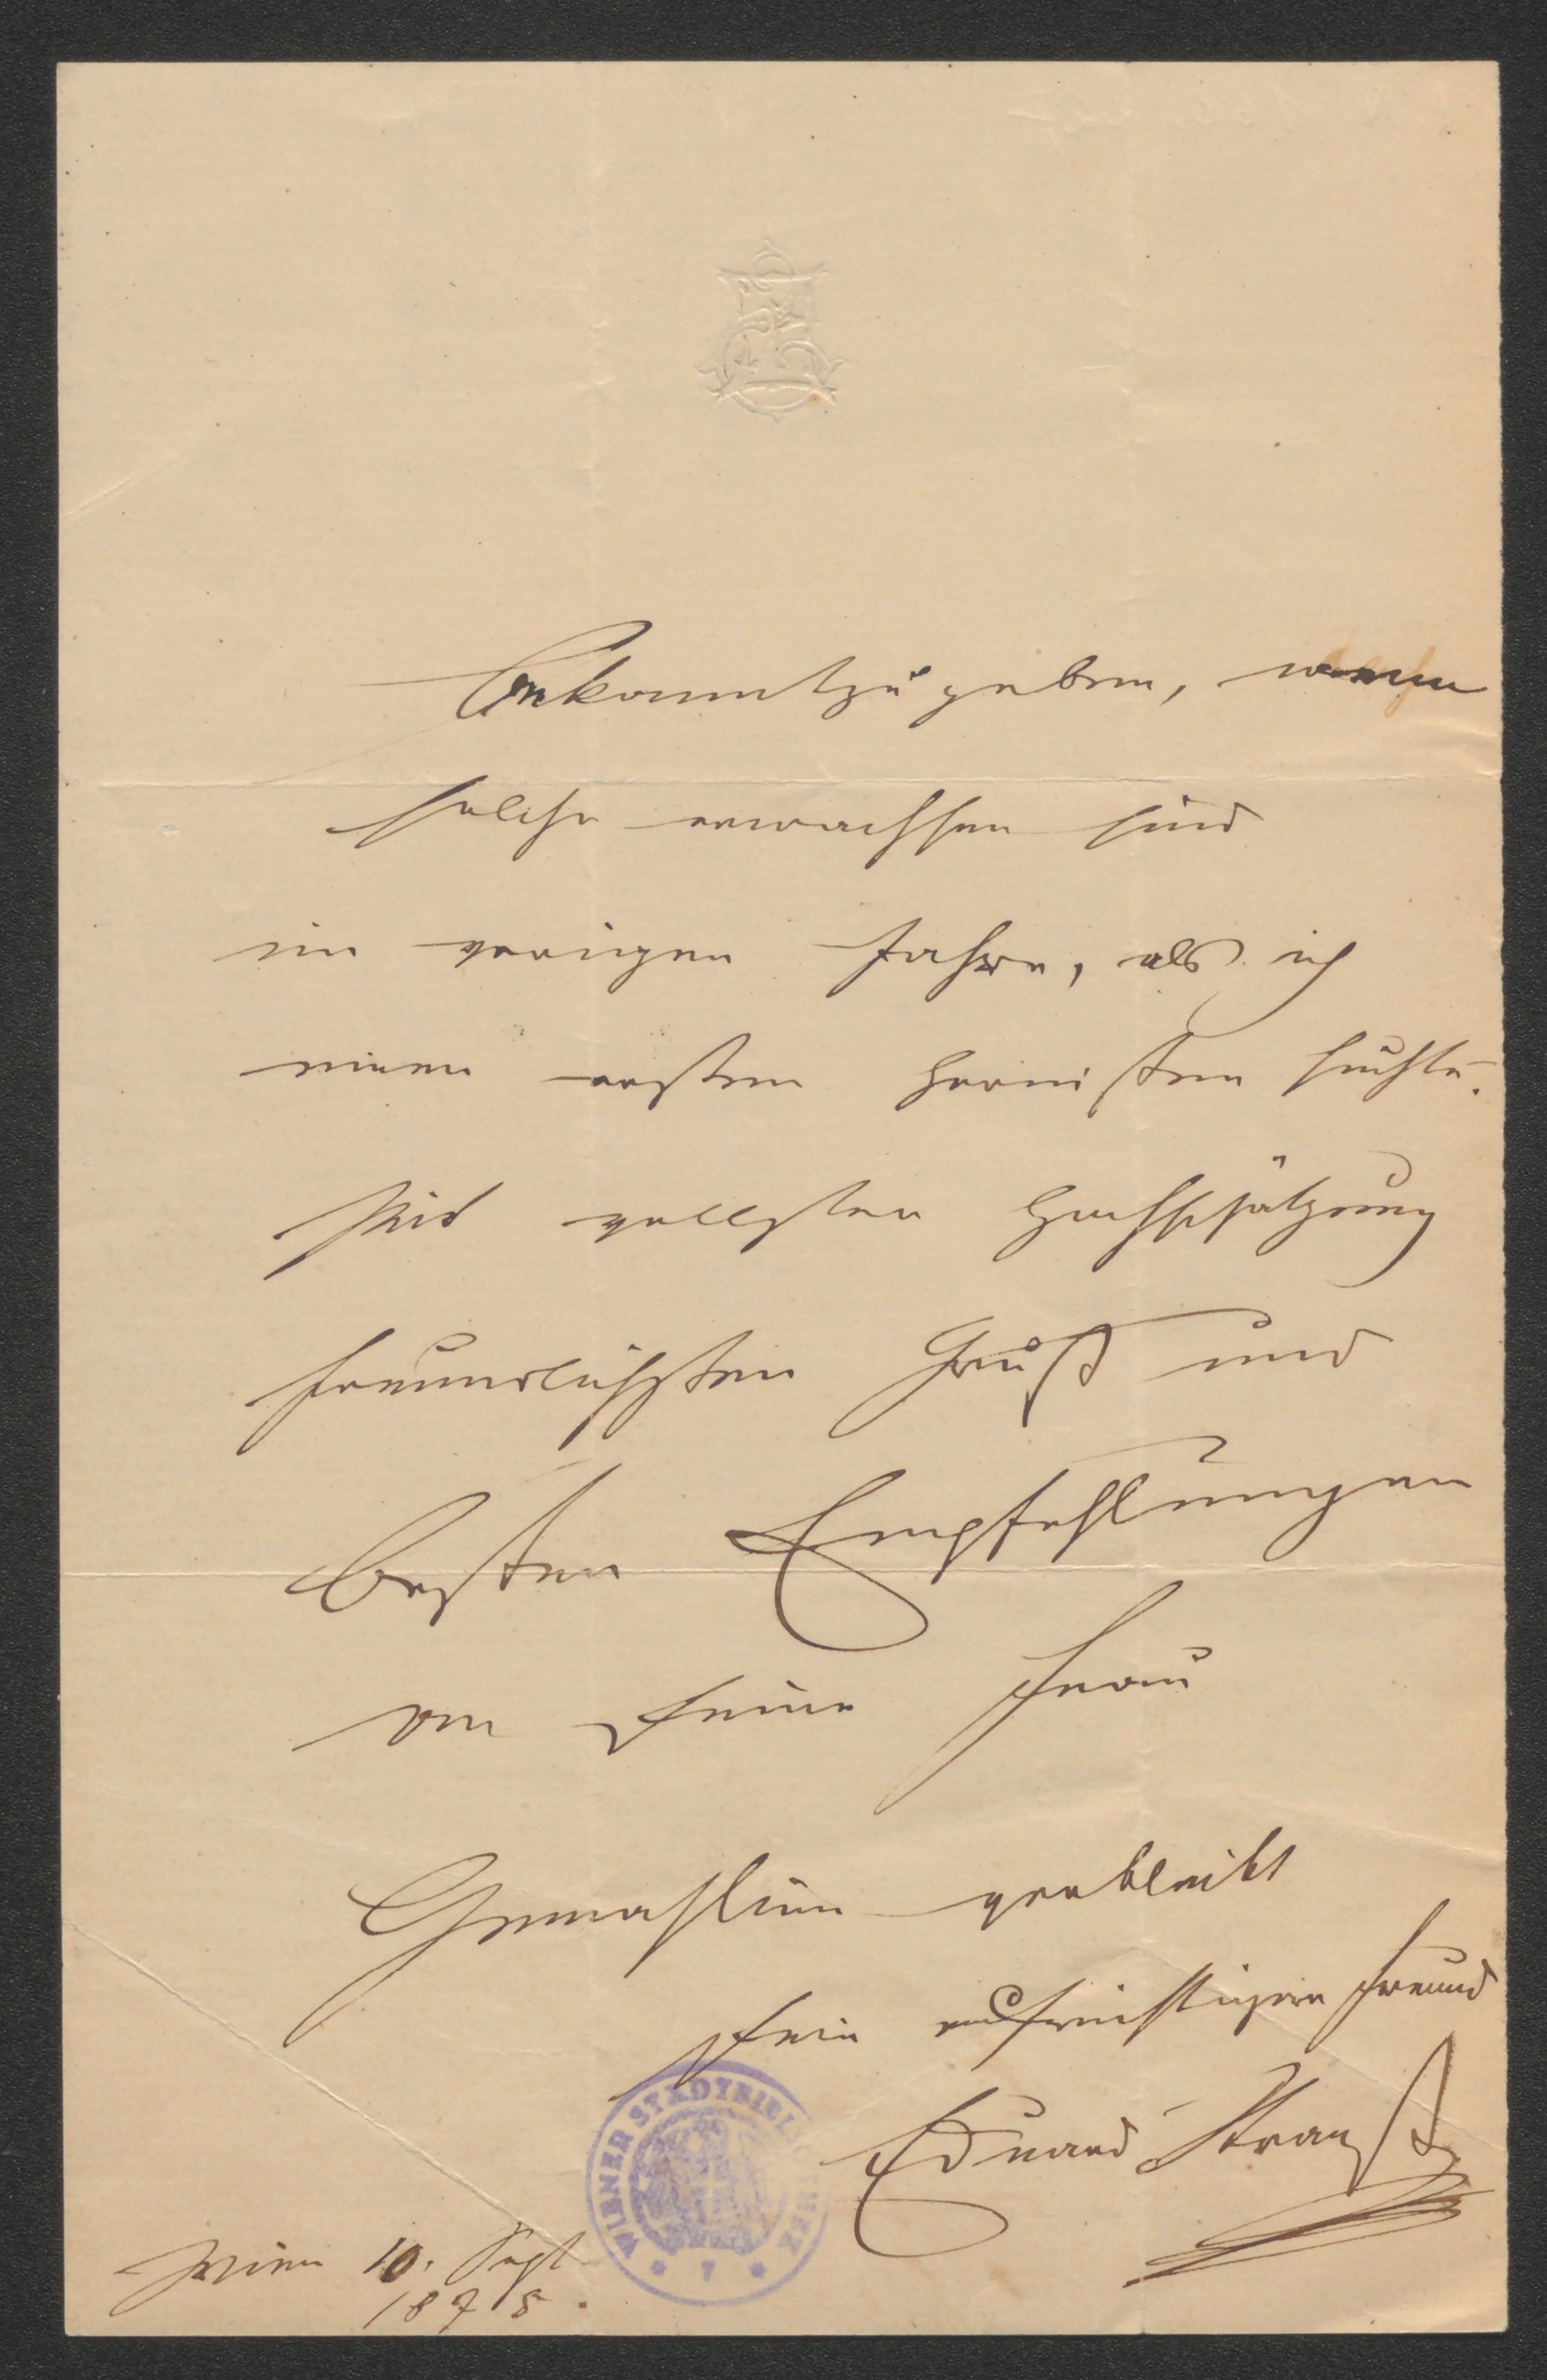 bekannt zu geben, wenn
solche erwachsen sind
im vorigen Jahre, als ich
einen ersten Hornisten suchte.
Mit vollster Hochschätzung
freundlichsten Gruß und
besten Empfehlungen
an Deine Frau
Gemahlin verbleibt
Dein aufrichtiger Freund
Eduard Strauß
Wien 10. Sept
1878.
WIENER STADTBIBLIOTHEK
* 7 *